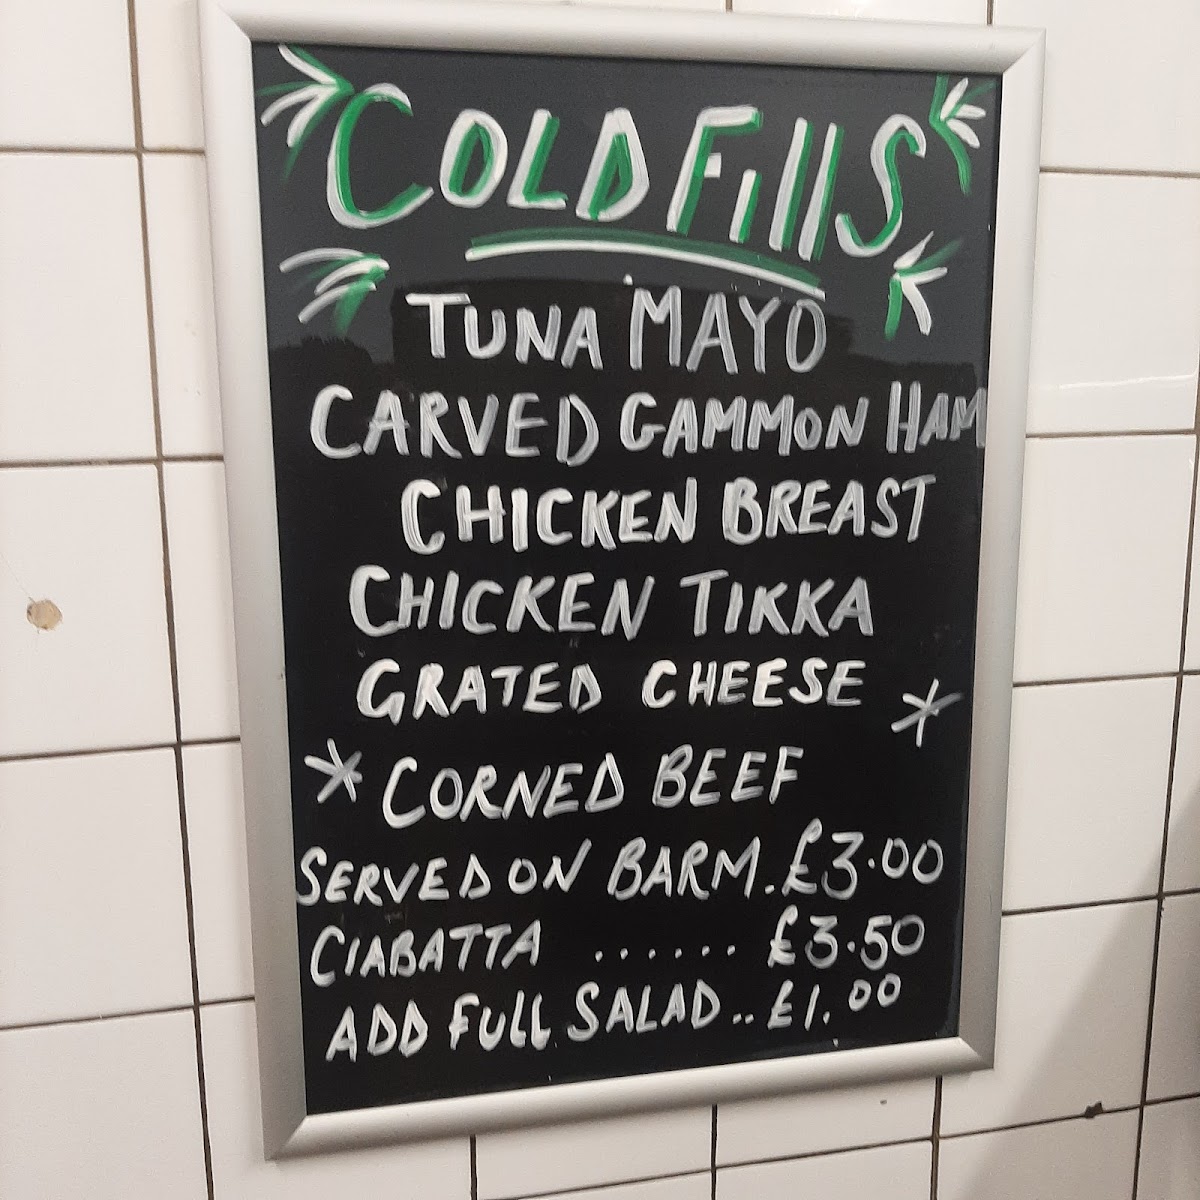 COLD Fills
TUNA MAYO
CARVED GAMMON HAM
CHICKEN BREAST
CHICKEN TIKKA
GRATED CHEESE
* CORNED BEEF *
SERVED ON BARM. £3.00
CIABATTA ...... £3.50
ADD FULL SALAD .. £1.00